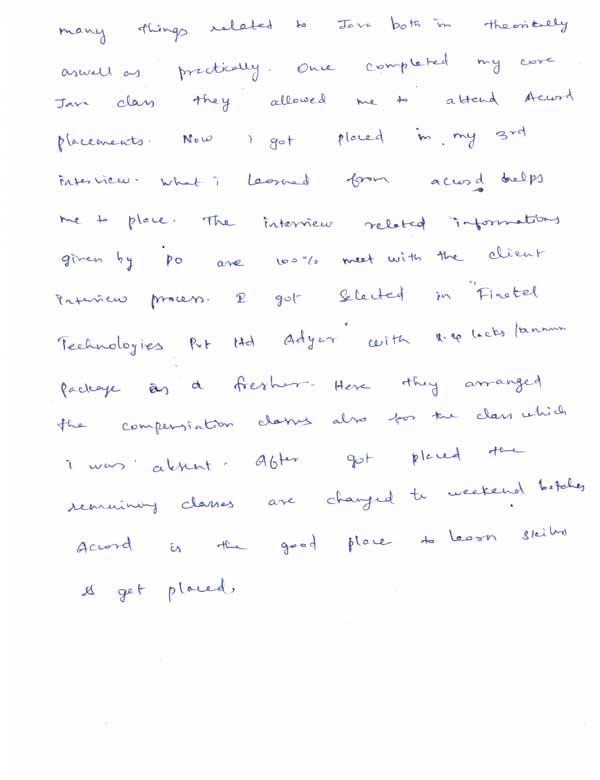 many things related to Java both in theoritelly
aswell as practically. Once completed my core
Java class they allowed me to attend Acord
placements. Now i got placed in my 3rd
interview. What i learned from acord helps
me to place. The interview related informations
given by PO are 100% meet with the client
interview process. I got selected in "Finatel
Technologies Pvt ltd Adyar" with lacks/annum
Package as a fresher. Here they arranged
the compensiation classes also for the class which
i was absent. After got placed the
remaining classes are changed to weekend batches
Acord is the good place to learn skills
& get placed.